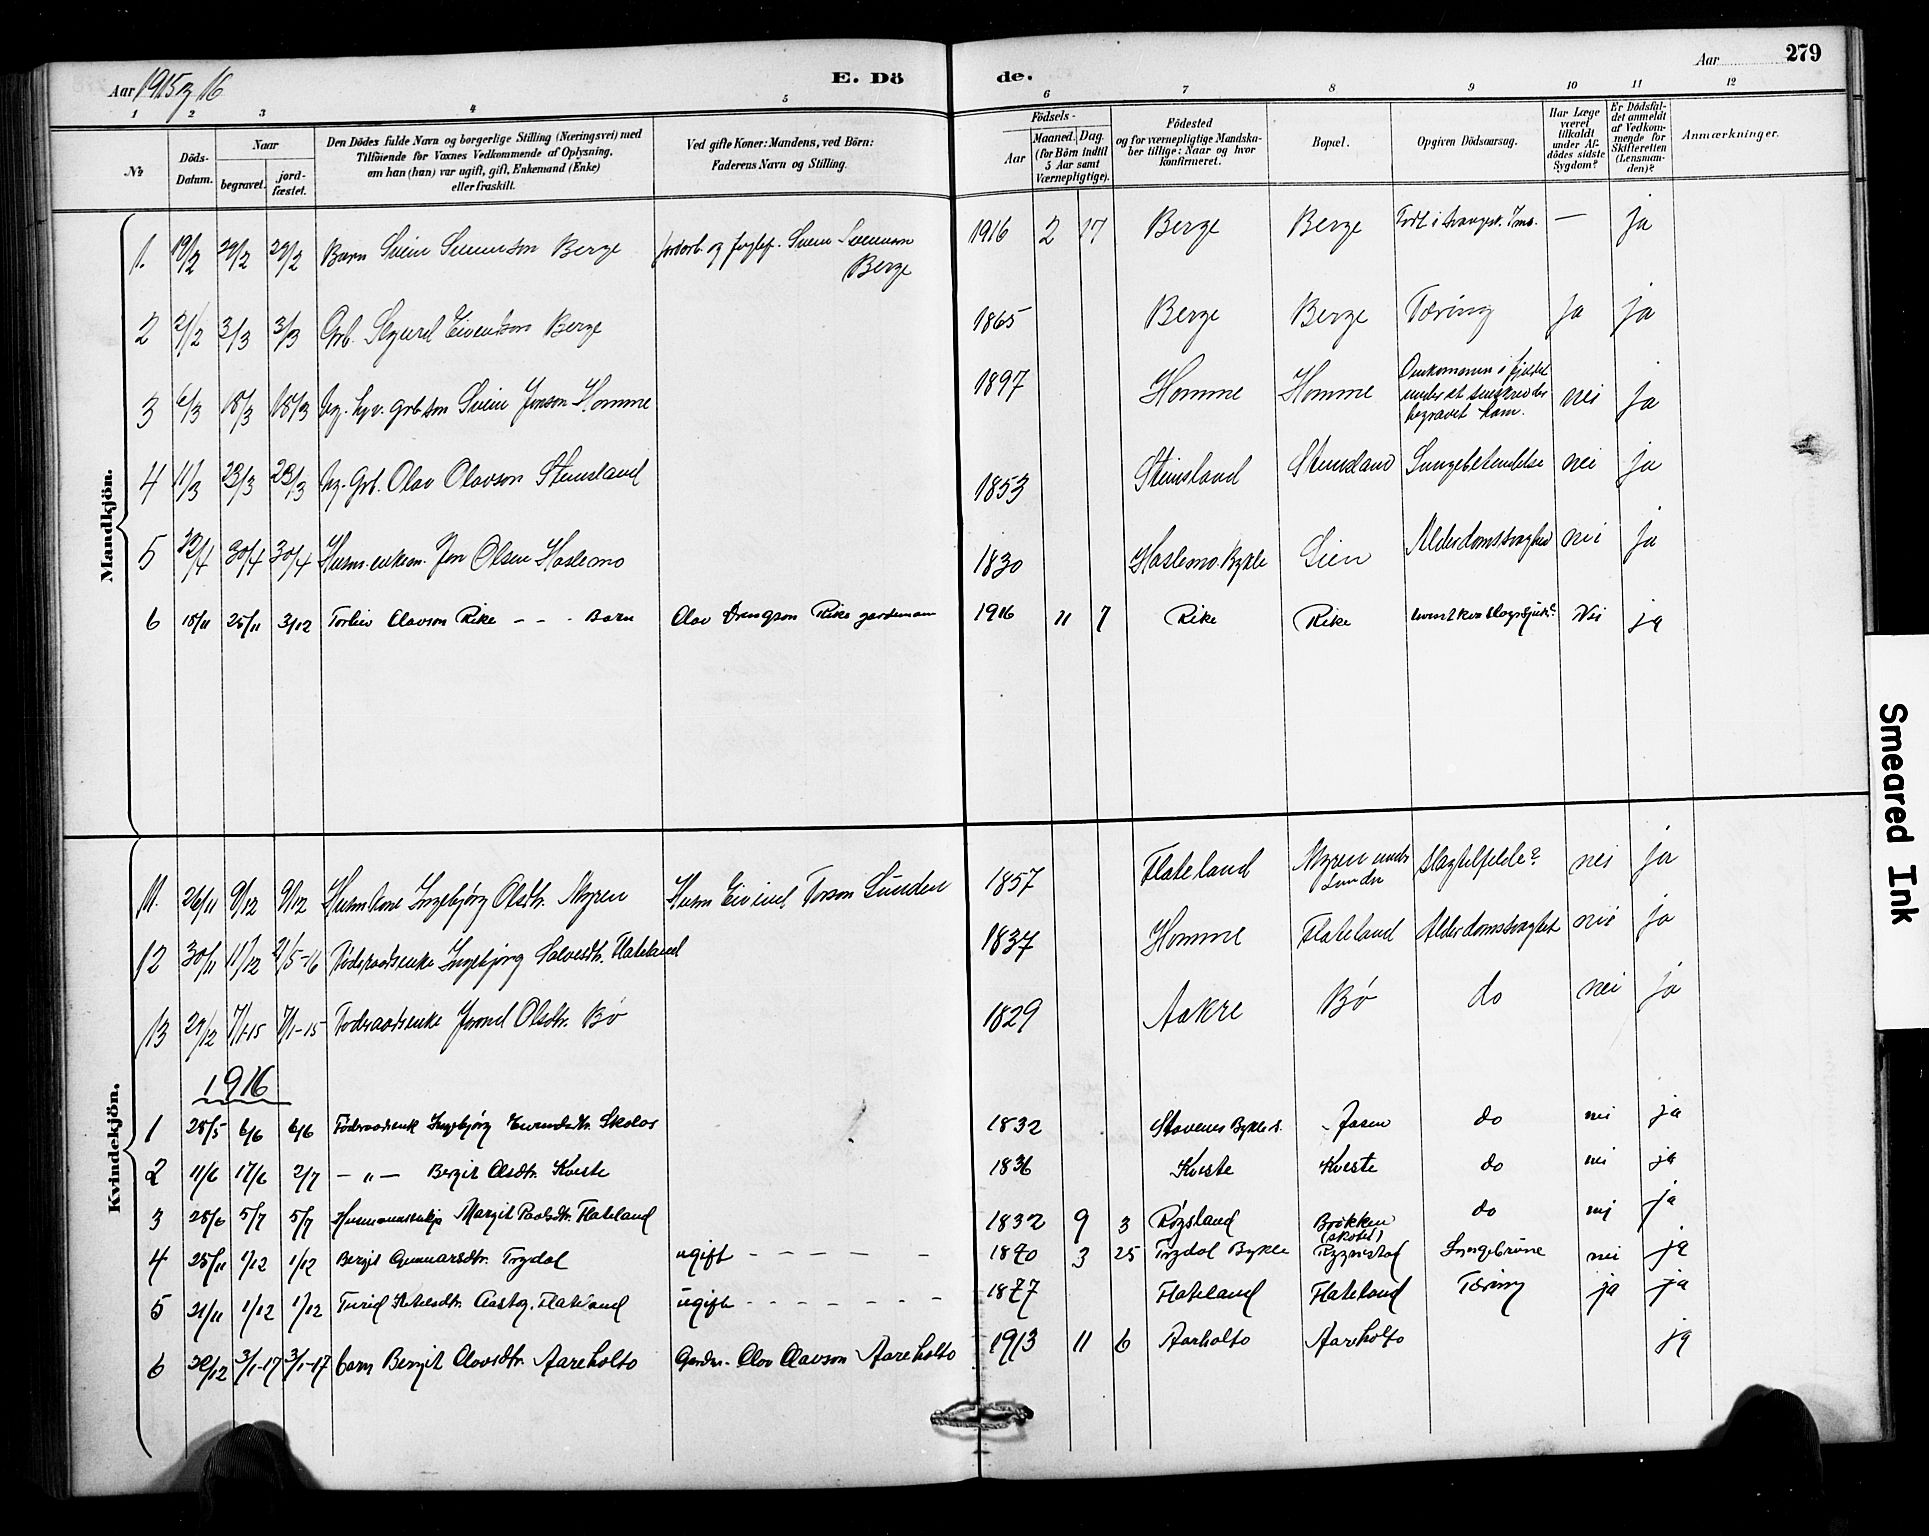 Aar 1915 og 16
E. Dö
de.
Aar 279
1 2 3 4 5 6 7 8 9 10 11 12
No
Döds-Datum.
Naar
begravet.
jord-fæstet.
Den Dödes fulde Navn og borgerlige Stilling (Næringsvei) med
Tilföiende for Voxnes Vedkommende af Oplysning,
om han (hun) var ugift, gift, Enkemand (Enke)
eller fraskilt.
Ved gifte Koner: Mandens, ved Börn:
Faderens Navn og Stilling.
Födsels-
Aar
Maaned. Dag.
(for Börn indtil
5 Aar samt
Værnepligtige).
Födested
og for værnepligtige Mandska-
ber tillige: Naar og hvor
konfirmeret.
Bopæl.
Opgiven Dödsaarsag.
Har Læge
været
tilkaldt
under Af-
dödes sidste
Sygdom?
Er Dödsfal-
det anmeldt
af Vedkom-
mende for
Skifteretten
(Lensman-
den)?
Anmærkninger.
Mandkjön.
1. 19/2 29/2 29/2 Barn Svein Sveinson Berge Svein Sveinson Berge 1916 2 17 Berge Berge — ja
2 2/2 3/3 3/3 Grb. Sigurd Eivindson Berge 1865 Berge Berge Tæring ja ja
3 6/3 18/3 18/3 Ug. grb.søn Svein Jonson Homme 1897 Homme Homme Omkommen i fjeldet
under et sneskred der
begravet ham. nei ja
4 11/3 23/3 23/3 Ug. Grb. Olav Olavson Steinsland 1853 Steinsland Steinsland Lungebetendelse nei ja
5 30/4 30/4 Husm. enkem. Jon Olsen Haslemo 1830 Haslemo Bykle Lien Alderdomssvaghed nei ja
6 18/11 25/11 3/12 Torleiv Olavson Rike - - - Barn Olav Drengson Rike gardmann 1916 11 7 Rike Rike Nei ja
Kvindekjön.
11. 26/11 9/12 9/12 Husm.kone Ingebjørg Olsdtr. Myren Husm. Eivind Torson Lunden 1857 Flateland Myren under
Lunden Slagtilfelde? nei ja
12 30/11 11/12 21/5-16 Föderaadsenke Ingebjörg Salvesdtr. Flateland 1837 Homme Flateland Alderdomssvaghet nei ja
13 29/12 7/1-15 7/1-15 Föderaadsenke Jorond Olsdtr. Bö 1829 Aakre Bø do nei ja
1916
1 28/5 6/6 6/6 Föderaadsenk Ingebjørg Eivindsdtr. Skolas 1832 Stavenes Bykle s. Josen do nei ja
2 11/6 17/6 2/7 — „ — Bergit Olsdtr. Kveste 1836 Kveste Kveste do nei ja
3 28/6 5/7 5/7 Husmannsenkje Margit Paalsdtr. Flateland 1832 9 3 Røysland Brökken do nei ja
4 25/11 1/12 1/12 Bergit Gunnarsdtr. Trydal ugift - - - - - 1840 3 25 Trydal Bykle Rygnestad nei ja
5 21/11 1/12 1/12 Turid Ketilsdtr. Aastog. Flateland ugift - - - - - - 1877 Flateland Flateland Tæring ja ja
6 20/12 3/1-17 3/1-17 barn Bergit Olavsdtr. Aareholto Gardm. Olav Olavson Aareholto 1913 11 6 Aarholto Aarholto ja
Smeared Ink